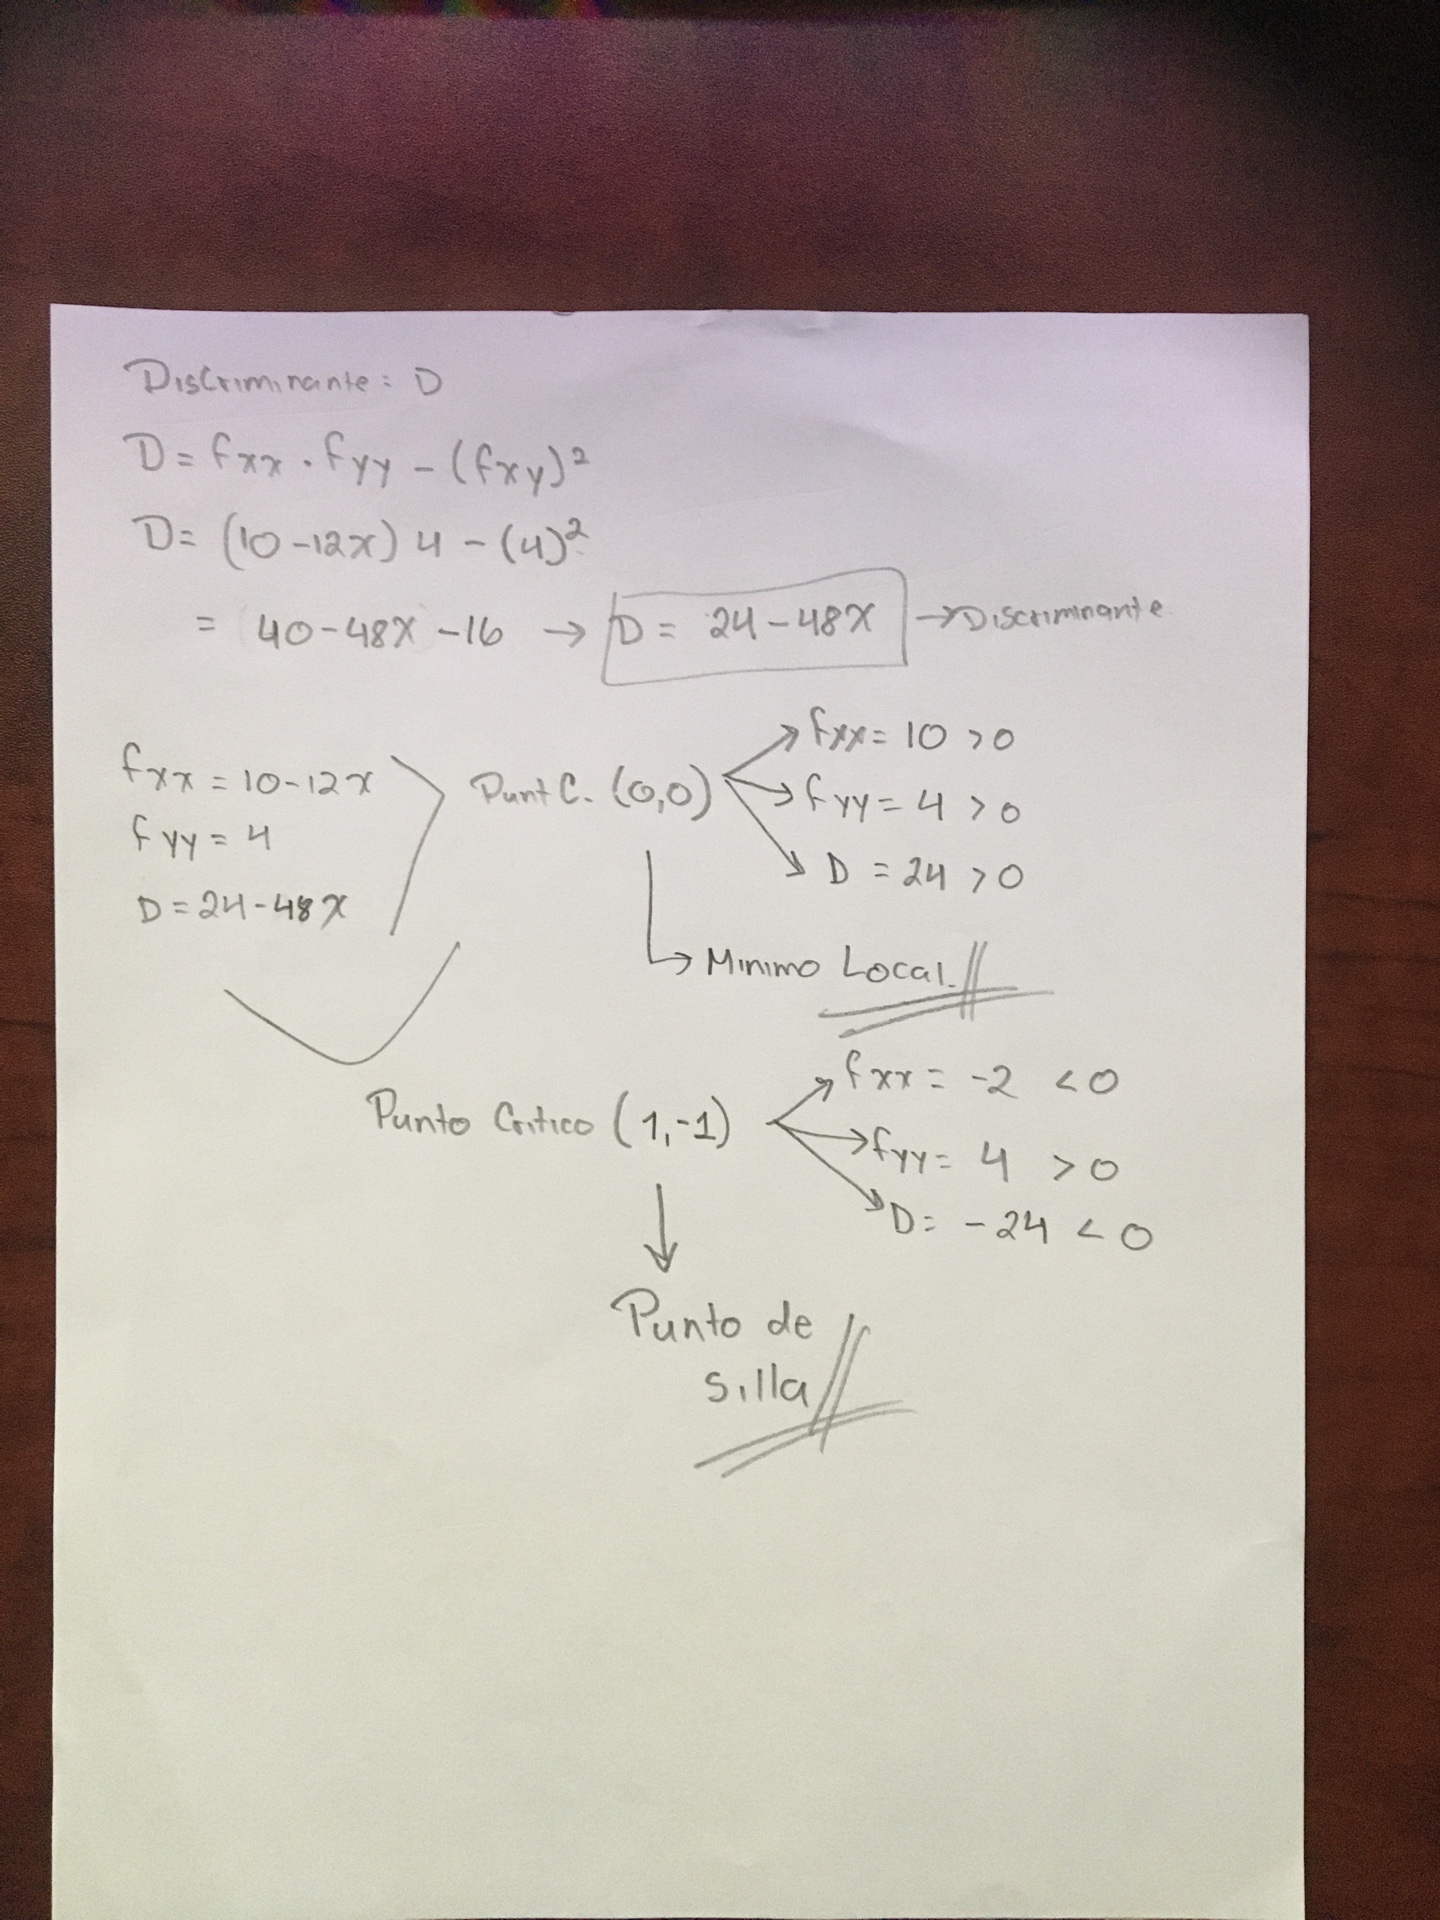 Discriminante: D
D = fxx · fyy - (fxy)²
D = (10 - 12x) 4 - (4)²
= 40 - 48x - 16 → D = 24 - 48x → Discriminante
fxx = 10 - 12x
fyy = 4
D = 24 - 48x
Punt C. (0,0)
fxx = 10 > 0
fyy = 4 > 0
D = 24 > 0
↳ Minimo Local.
Punto Critico (1,-1)
fxx = -2 < 0
fyy = 4 > 0
D = -24 < 0
Punto de
silla